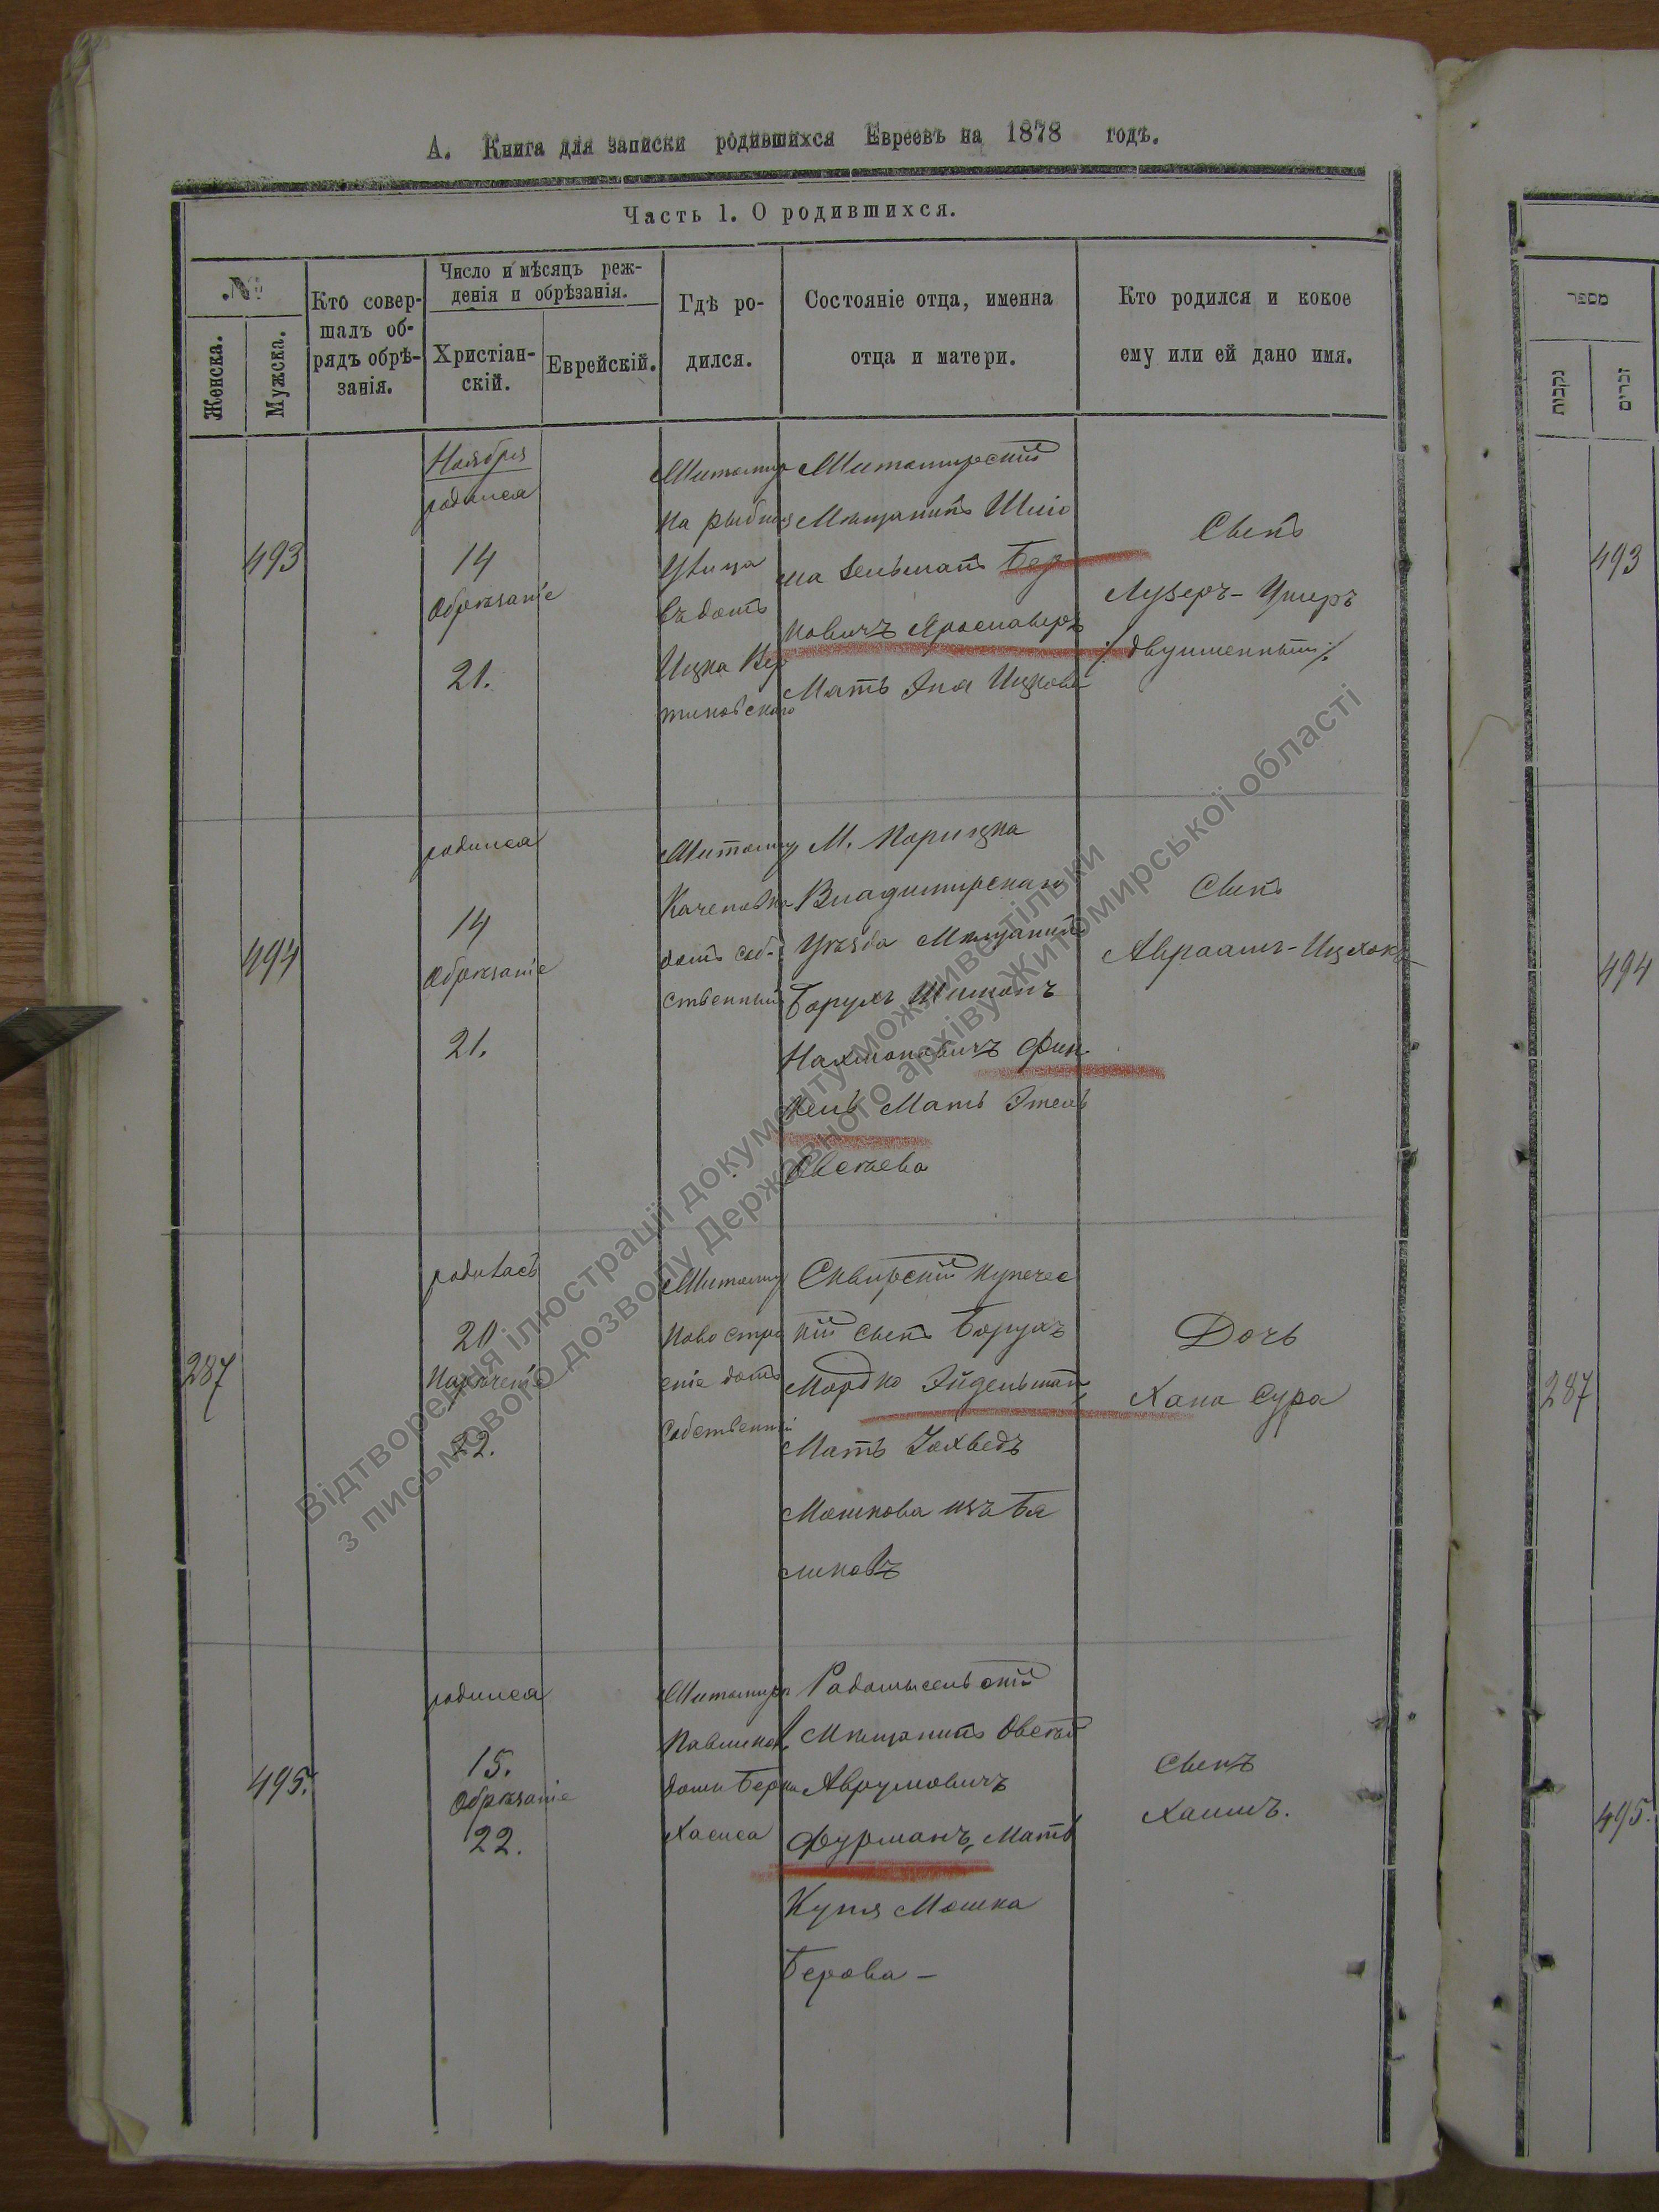 А. Книга для записки родившихся Евреевъ на 1878 годъ.
Часть 1. О родившихся.
№
Женска.
Мужска.
Кто совер-
шалъ об-
рядъ обрѣ-
занія.
Число и мѣсяцъ реж-
денія и обрѣзанія.
Христіан-
скій.
Еврейскій.
Гдѣ ро-
дился.
Состояніе отца, именна
отца и матери.
Кто родился и кокое
ему или ей дано имя.
493
Ноября
родился
14
Обрѣзаніе
21.
Житомир
на рыбной
Улица
въ домѣ
Ицка
Житомирскій
Мѣщанинъ
Мать Ицкова
Сынъ
Лузеръ-Ушеръ
/. двуименный ./
494
родился
14
Обрѣзаніе
21.
Житомир
домъ соб-
ственный
М. Корицка
Владимирскаго
Уѣзда Мѣщанинъ
Борухъ Шимонъ
Нахмоновичъ Фин
кель Мать Этель
Овсѣева
Сынъ
Авраамъ-Ицхокъ
287
родилась
20
Нареченіе
22.
Житомир
Ново стро
еніе домъ
Собственный
Сквирскій купечес
кій сынъ Борухъ
Мордко Эйдельман
Мать Іохведъ
Мошкова изъ Бя
ликовъ
Дочь
Хана Сура
495.
родился
15.
Обрѣзаніе
22.
Житомиръ
домъ Берки
Радомысельскій
Мѣщанинъ Овсѣй
Аврумовичъ
Фурманъ, Мать
Мошка
Берова -
Сынъ
Хаимъ.
מספר
נקבות
זכרים
493
494
287
495.
Відтворення ілюстрації документу можливе тільки
з письмового дозволу Державного архіву Житомирської області